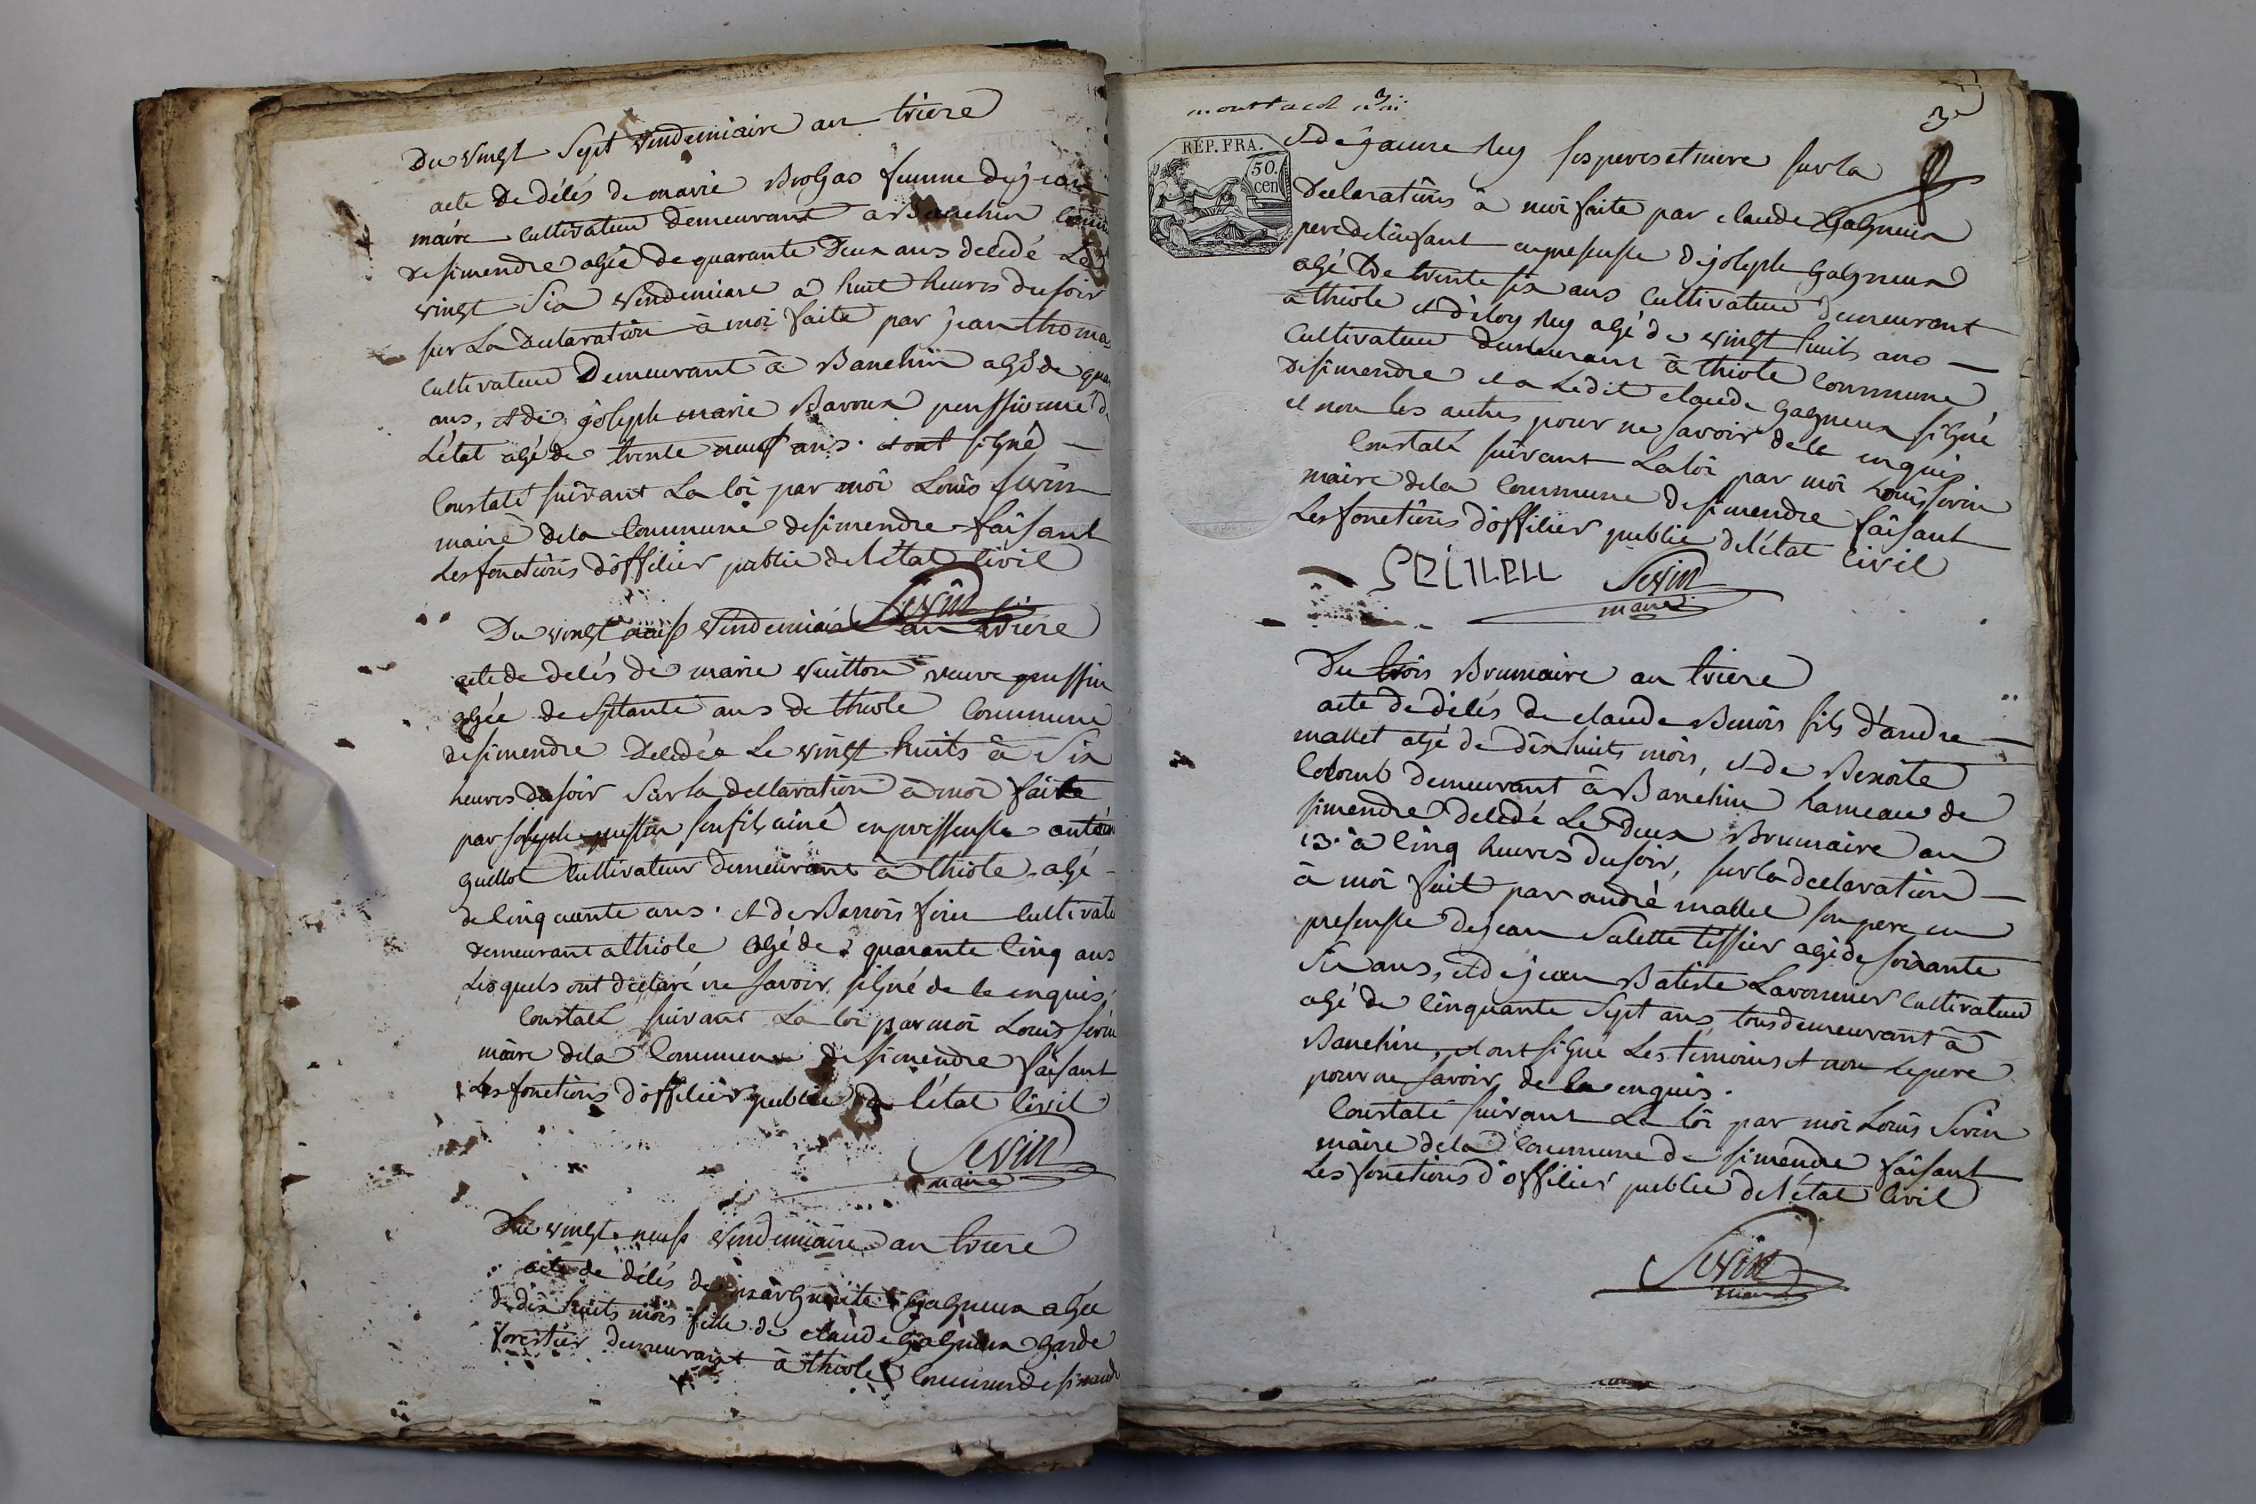 Du vingt Sept vendemiaire an trieze
acte de décés de marie femme de jean
maire cultivateur demeurant a Banchin
de simendre agée de quarante Deux ans décédé Le
vingt Six vendemiaire à huit heures du soir
sur La Declaration à moi faite par jean thomas
cultivateur Demeurant à Banchin agé de
ans, et de joseph marie Bavoux penssionné
L'état agé de trente neuf ans. et ont signé
Constaté suivant La loi par moi Louis sevin
maire de la Commune de simendre faisant
Les fonctions d'officier public de l'état civil
Sevin
Du vingt neuf vendemiaire an trieze
acte de décés de marie vuitton veuve
agée de septante ans de thiole Commune
de simendre Décédée Le vingt huits à Six
heures du soir Sur la declaration à moi faite
par joseph son fils ainé en
guillot Cultivateur demeurant à thiole agé
de cinquante ans. et de cultivat
demeurant a thiole agé de quarante cinq ans
Lesquels ont déclaré ne savoir signé de ce enquis
Constaté suivant La loi par moi Louis sevin
maire de la Commune de simendre faisant
Les fonctions d'officier public de l'état civil
Sevin
maire
Du vingt neuf vendemiaire an trieze
acte de décés de marguerite gagneux agée
de dix huits mois fille de claude gagneux garde
forestier demeurant à thiole Commun de simand
3
RÉP. FRA.
50.
cen
et de jaune Rey ses peres et mere sur la
Declarations à moi faite par claude gagneux
pere de l'enfant en presense de joseph gagneux
agé De trente six ans cultivateur demeurant
a thiole et d'eloy Rey agé de vingt huits ans
Cultivateur demeurant à thiole Commune
de simendre et a Ledit claude gagneux signé
et non les autres pour ne savoir de ce enquis
Constaté suivant La loi par moi Louis sevin
maire de la Commune de simendre faisant
Les fonctions d'officier public de l'état civil
Sevin
maire
Du trois Brumaire an trieze
acte de décés de claude Benois fils d'andre
mallet agé de dix huits mois, et de Benoite
Colomb demeurant à Banchin hameau de
simendre décédé Le Deux Brumaire an
13. à cinq heures du soir, sur la declaration
à moi fait par andré mallet son pere en
presense de jean Salette tissier agé de soixante
Six ans, et de jean Batiste Lavorenier Cultivateur
agé de cinquante Sept ans, tous demeurant à
Banchin, et ont signé Les témoins et non le pere
pour ne savoir de ce enquis.
Constaté suivant La loi par moi Louis Sevin
maire de la Commune de simendre faisant
Les fonctions d'officier public de l'état civil
Sevin
maire